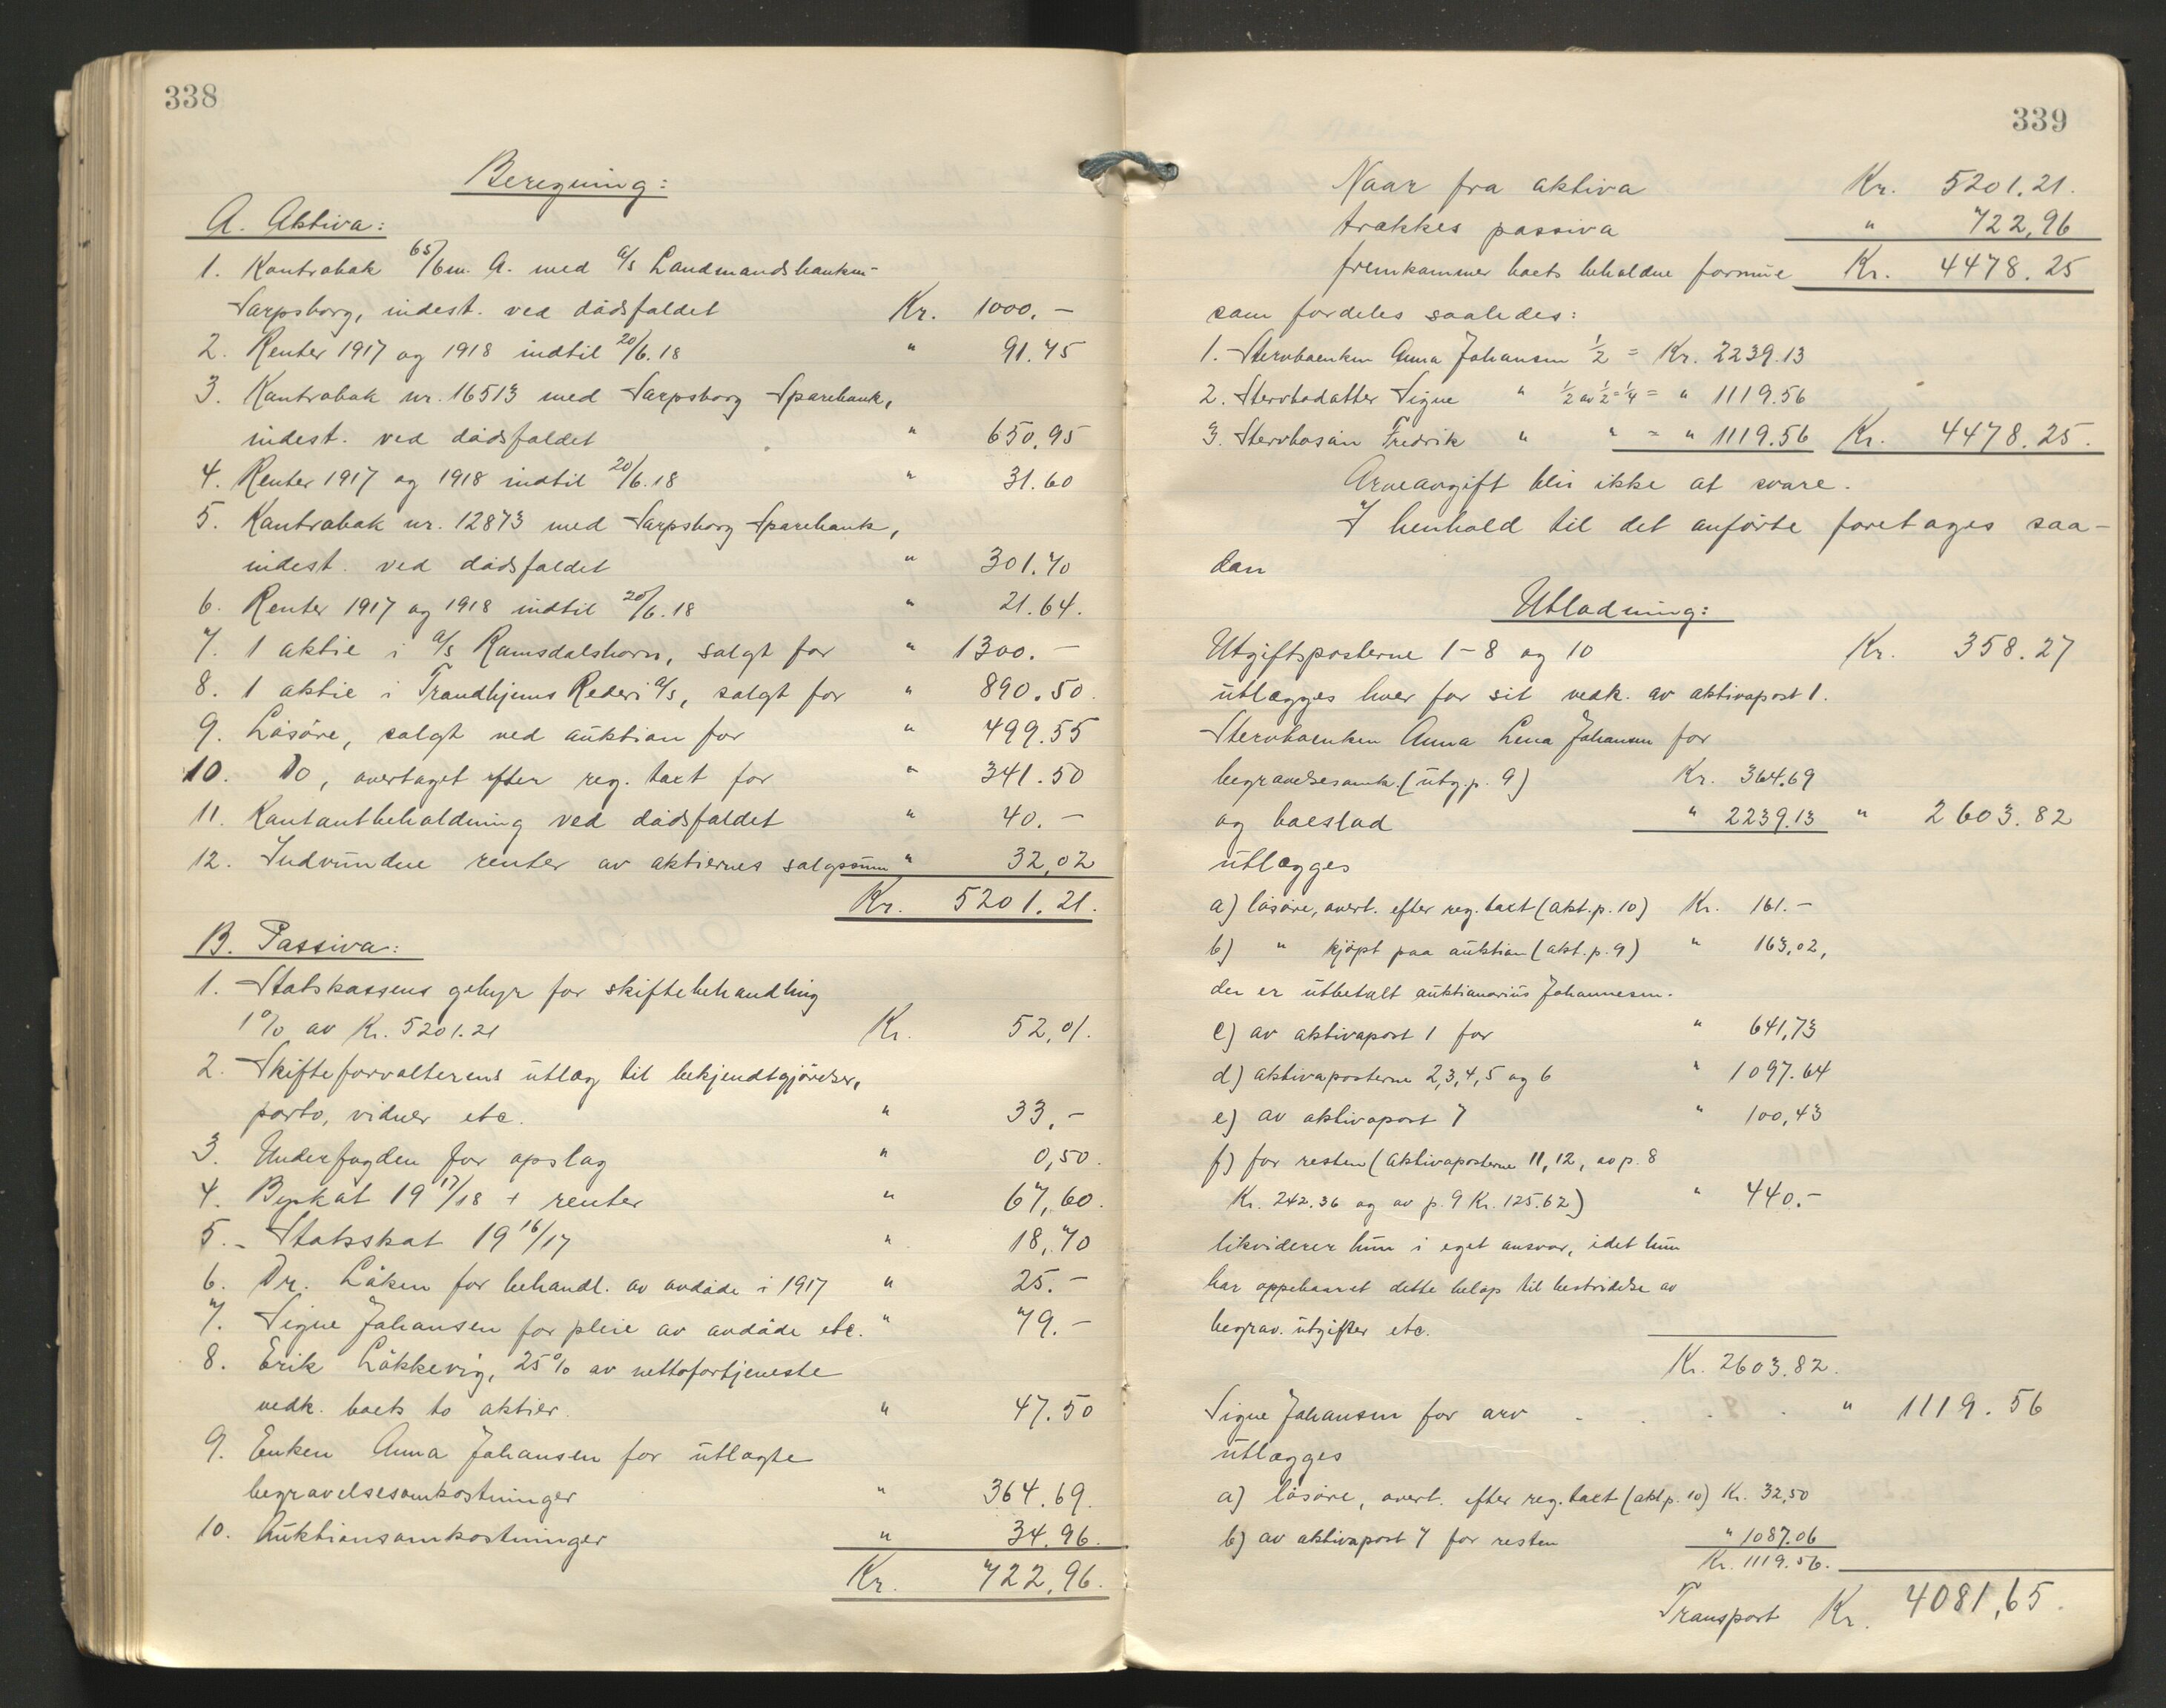 338
Beregning:
A. Aktiva:
1. Kontrabok 65/6m. A. med a/s Landmandsbanken-
Sarpsborg, indest. ved dödsfaldet Kr. 1000.-
2. Renter 1917 og 1918 indtil 20/6.18 " 91.75
3. Kontrabok nr. 16513 med Sarpsborg Sparebank,
indest. ved dödsfaldet " 650.95
4. Renter 1917 og 1918 indtil 20/6.18 " 31.60
5. Kontrabok nr. 12873 med Sarpsborg Sparebank,
indest. ved dödsfaldet " 301.70
6. Renter 1917 og 1918 indtil 20/6.18 " 21.64.
7. 1 aktie i a/s Ramsdalshorn, solgt for " 1300.-
8. 1 aktie i Trondhjems Rederi a/s, solgt for " 890.50.
9. Lösöre, solgt ved auktion for " 499.55
10. Do, overtaget efter reg. taxt for " 341.50
11. Kontantbeholdning ved dödsfaldet " 40.-
12. Indvundne renter av aktiernes salgssum " 32,02
Kr. 5201.21.
B. Passiva:
1. Statskassens gebyr for skiftebehandling
1% av Kr. 5201.21 Kr. 52,01.
2. Skifteforvalterens utlæg til bekjendtgjörelser,
porto, vidner etc. " 33,-
3. Underfogden for opslag " 0,50.
4. Byskat 19 17/18 + renter " 67,60.
5.- Statsskat 19 16/17 " 18,70
6. Dr. Löken for behandl. av avdöde i 1917 " 25.-
7. Signe Johansen for pleie av avdöde etc. " 79.-
8. Erik Lökkevig, 25% av nettofortjeneste
vedk. boets to aktier. " 47.50
9. Enken Anna Johansen for utlagte
begravelsesomkostninger " 364.69.
10. Auktionsomkostninger " 34.96.
Kr. 722,96.
339
Naar fra aktiva Kr. 5201.21.
trækkes passiva " 722,96
fremkommer boets beholdne formue Kr. 4478.25
som fordeles saaledes:
1. Stervboenken Anna Johansen 1/2 = Kr. 2239.13
2. Stervbodatter Signe " 1/2 av 1/2 = 1/4 = " 1119.56
3. Stervbosön Fredrik " " = " 1119.56 Kr. 4478.25.
Arveavgift blir ikke at svare.
I henhold til det anförte foretages saa-
dan
Utlodning:
Utgiftsposterne 1-8 og 10 Kr. 358.27
utlægges hver for sit vedk. av aktivapost 1.
Stervboenken Anna Lena Johansen for
begravelsesomk. (utg.p. 9) Kr. 364.69
og boeslod " 2239.13 " 2603.82
utlægges
a) lösöre, overt. efter reg. taxt (akt.p. 10) Kr. 161.-
b) " kjöpt paa auktion (akt.p. 9) " 163,02,
der er utbetalt auktionarius Johannesen.
c) av aktivapost 1 for " 641,73
d) aktivaposterne 2,3,4,5 og 6 " 1097.64
e) av aktivapost 7 " 100,43
f) for resten (aktivaposterne 11, 12, av p. 8
Kr. 242.36 og av p. 9 Kr. 125.62) " 440.-
likviderer hun i eget ansvar, idet hun
har oppebaaret dette belöp til bestridelse av
begrav. utgifter etc.
Kr. 2603.82.
Signe Johansen for arv . . . . " 1119.56
utlægges
a) lösöre, overt. efter reg. taxt (akt p. 10) Kr. 32,50
b) av aktivapost 7 for resten " 1087.06
Kr. 1119.56.
Transport Kr. 4081,65.